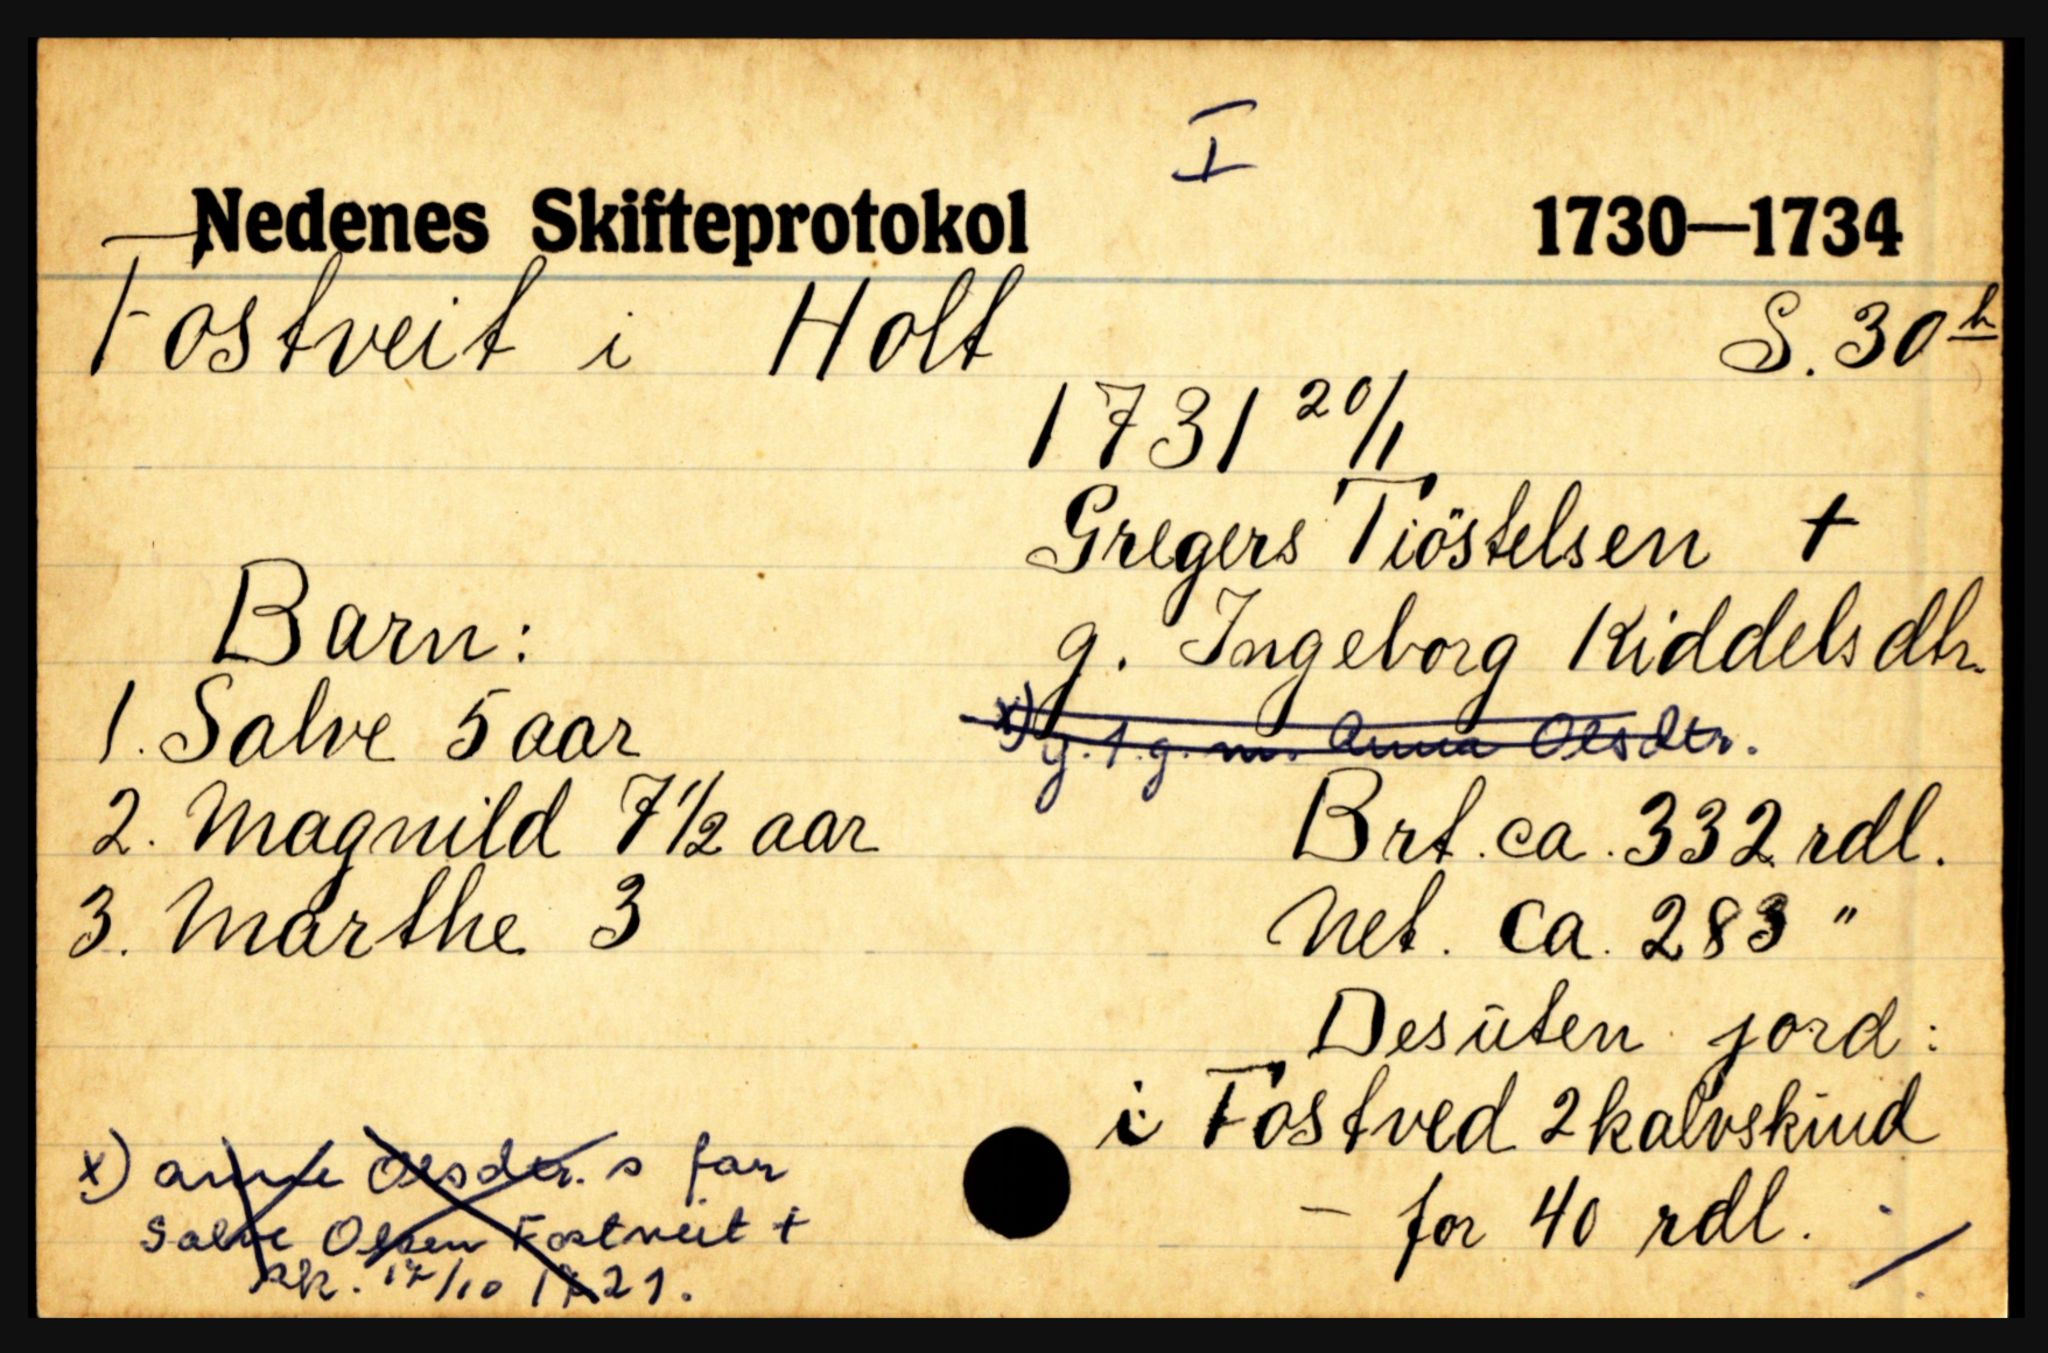 I
Nedenes Skifteprotokol 1730—1734
Fostveit i Holt S. 30 b
1731 20/1
Gregers Tiöstelsen †
g. Ingeborg Kiddelsdtr.
x) g. 1. g. m. Anna Olsdtr.
Brt. ca. 332 rdl.
Net. ca. 283 "
Desuten jord:
i Fostved 2 kalvskind
— for 40 rdl.
Barn:
1. Salve 5 aar
2. Magnild 7 1/2 aar
3. Marthe 3
x) Anne Olsdtr. s far
Salve Olsen Fostveit †
sk. 17/10 1721.